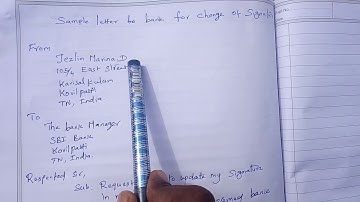 Sample letter to bank for change of Signature
From
Jezlin Manna.D
105/2 East Street
Kansalkulam
Kovilpatti
TN, India
To
The bank Manager
SBI Bank
Kovilpatti
TN, India.
Respected Sir,
Sub: Request to update my Signature
in